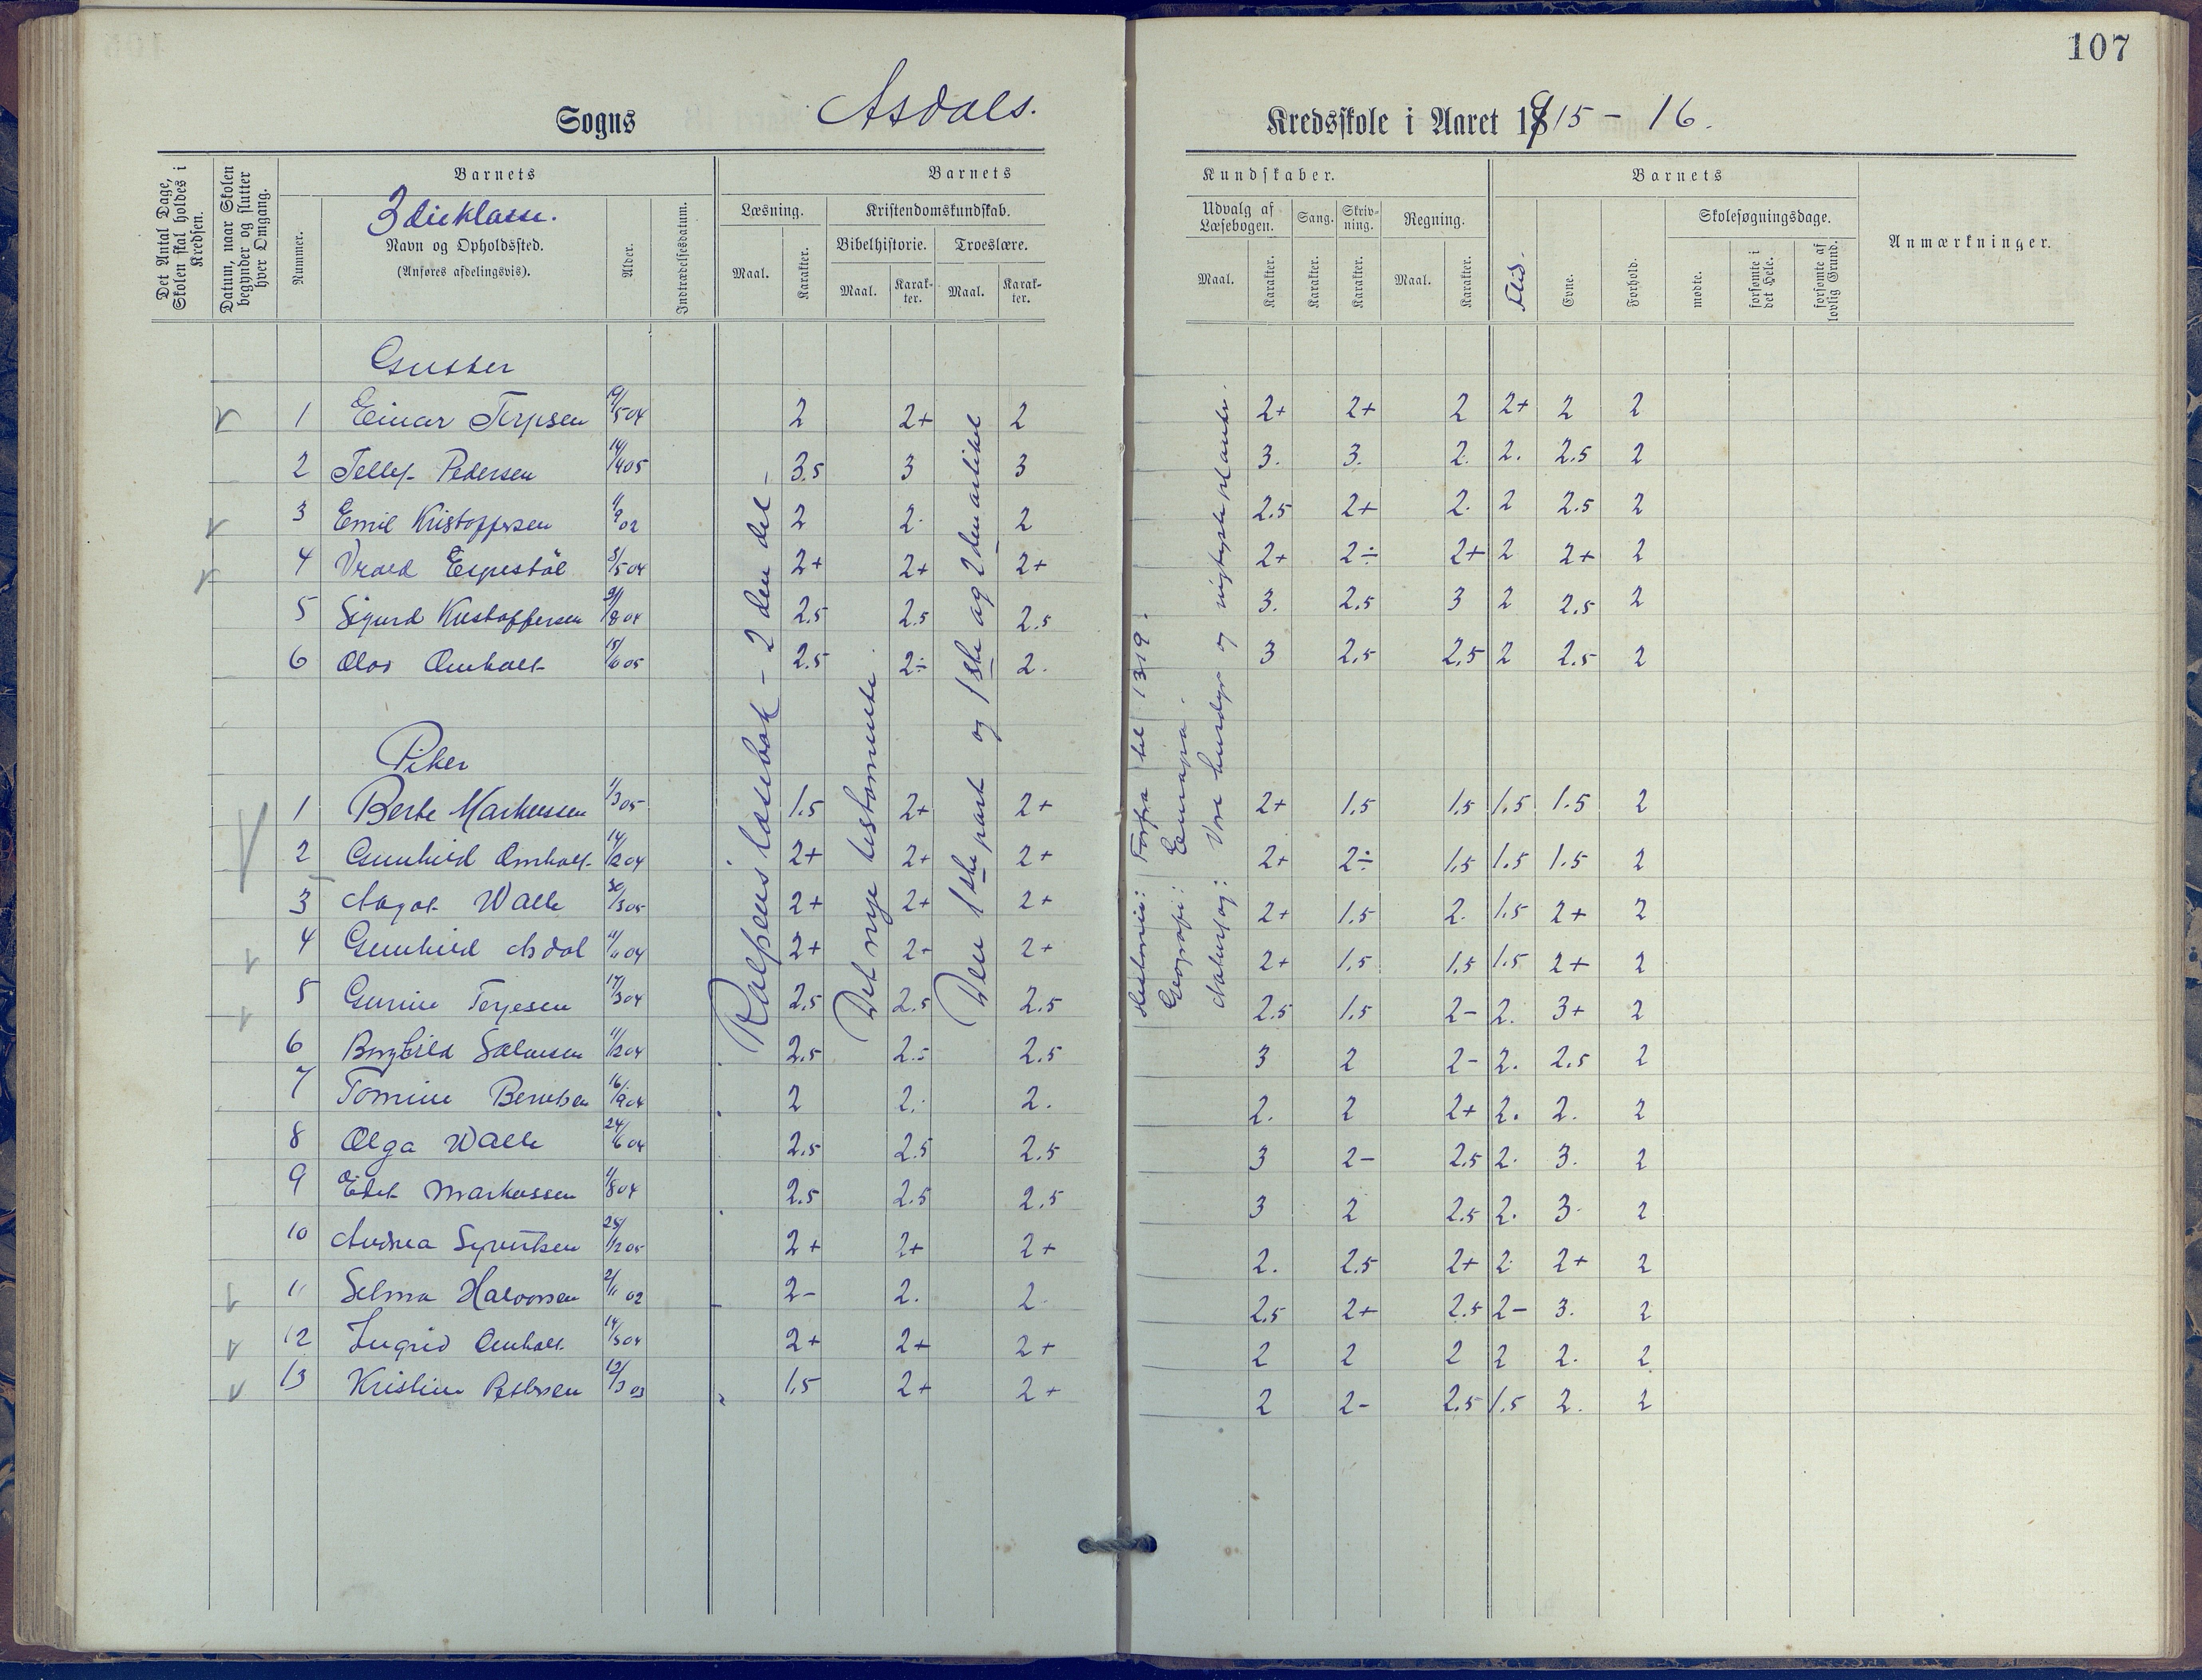 107
Sogns Asdals. Kredsskole i Aaret 1915 - 16.
Det Antal Dage, Skolen skal holdes i Kredsen.
Datum, naar Skolen begynder og slutter hver Omgang.
Nummer.
Barnets
3dieklasse.
Navn og Opholdssted.
(Anføres afdelingsvis).
Alder.
Indtrædelsesdatum.
Barnets Kundskaber.
Læsning.
Maal.
Karakter.
Kristendomskundskab.
Bibelhistorie.
Maal.
Karakter.
Troeslære.
Maal.
Karakter.
Udvalg af Læsebogen.
Maal.
Karakter.
Sang.
Karakter.
Skrivning.
Karakter.
Regning.
Maal.
Karakter.
Barnets
Flid.
Evne.
Forhold.
Skolesøgningsdage.
mødte.
forsømte i det Hele.
forsømte af lovlig Grund.
Anmærkninger.
Gutter
1 Einar Terjesen 19/5 04 2 2+ 2 2+ 2+ 2 2+ 2 2
2 Tellef Pedersen 14/4 05 3.5 3 3 3. 3. 2. 2. 2.5 2
3 Emil Kristoffersen 11/9 02 2 2. 2 2.5 2+ 2. 2 2.5 2
4 Vrald Espestøl 3/5 04 2+ 2+ 2+ 2+ 2÷ 2+ 2 2+ 2
5 Sigurd Kristoffersen 8 04 2.5 2.5 2.5 3. 2.5 3 2 2.5 2
6 Olav Omholt 15/6 05 2.5 2÷ 2. 3 2.5 2.5 2 2.5 2
Piker
1 Berte Markussen 1/3 05 1.5 2+ 2+ 2+ 1.5 1.5 1.5 1.5 2
2 Gunhild Omholt 14/12 04 2+ 2+ 2+ 2+ 2÷ 1.5 1.5 1.5 2
3 Aagot Walle 30/3 05 2+ 2+ 2+ 2+ 1.5 2. 1.5 2+ 2
4 Gunhild Asdal 11/11 04 2+ 2+ 2+ 2+ 1.5 1.5 1.5 2+ 2
5 Gurine Terjesen 17/3 04 2.5 2.5 2.5 2.5 1.5 2- 2. 3+ 2
6 Borghild Salvesen 11/12 04 2.5 2.5 2.5 3 2 2- 2. 2.5 2
7 Tomine Berntsen 16/9 04 2 2. 2. 2. 2 2+ 2. 2. 2
8 Olga Walle 24/6 04 2.5 2.5 2.5 3 2- 2.5 2. 3. 2
9 Edel Markussen 11/8 04 2.5 2.5 2.5 3 2 2.5 2. 3. 2
10 Andrea Syvertsen 25/12 05 2+ 2+ 2+ 2. 2.5 2+ 2 2+ 2
11 Selma Halvorsen 2/11 02 2- 2. 2 2.5 2+ 2.5 2- 3. 2
12 Ingrid Omholt 14/5 04 2+ 2+ 2+ 2 2 2 2 2. 2
13 Kristine Pettersen 12/3 03 1.5 2+ 2+ 2 2- 2.5 1.5 2. 2
Rolfsens læsebok - 2den del -
Det nye testamente.
Den 1ste part og 1ste og 2den artikel
Historie: Forfra til 1319.
Geografi: Europa.
Naturfag: Vore husdyr og vigtigste planter.